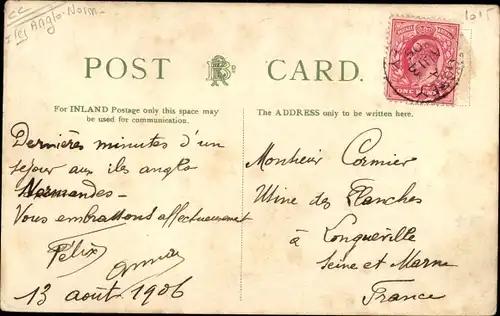 Iles Anglo-Norm.
POST CARD.
For INLAND Postage only this space may
be used for communication.
The ADDRESS only to be written here.
ONE PENNY
Dernières minutes d'un
séjour aux iles anglo
Normandes -
Vous embrassons affectueusement
Félix
13 août 1906
Monsieur Cormier
Usine des Planches
à Longueville
Seine et Marne
France